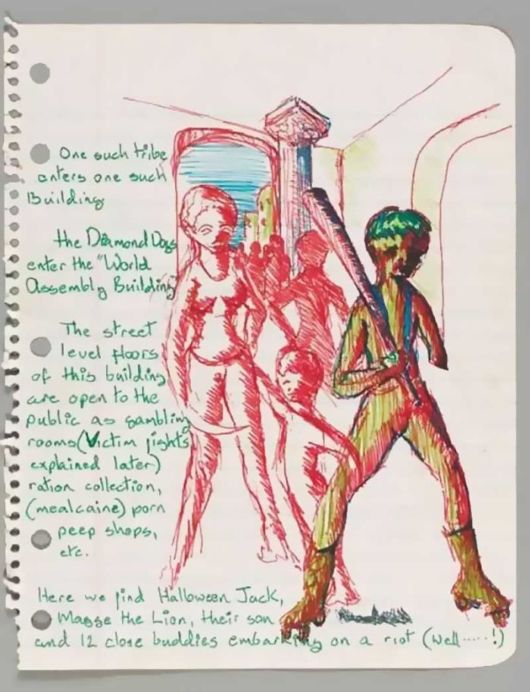 One such tribe
enters one such
Building
the Diamond Dogs
enter the "World
Assembly Building
The street
level floors
of this building
are open to the
public as gambling
rooms (Victim fights
explained later)
ration collection,
(mealcaine) porn
peep shops,
etc.
Here we find Halloween Jack,
Magse the Lion, their son
and 12 close buddies embarking on a riot (Well.....!)